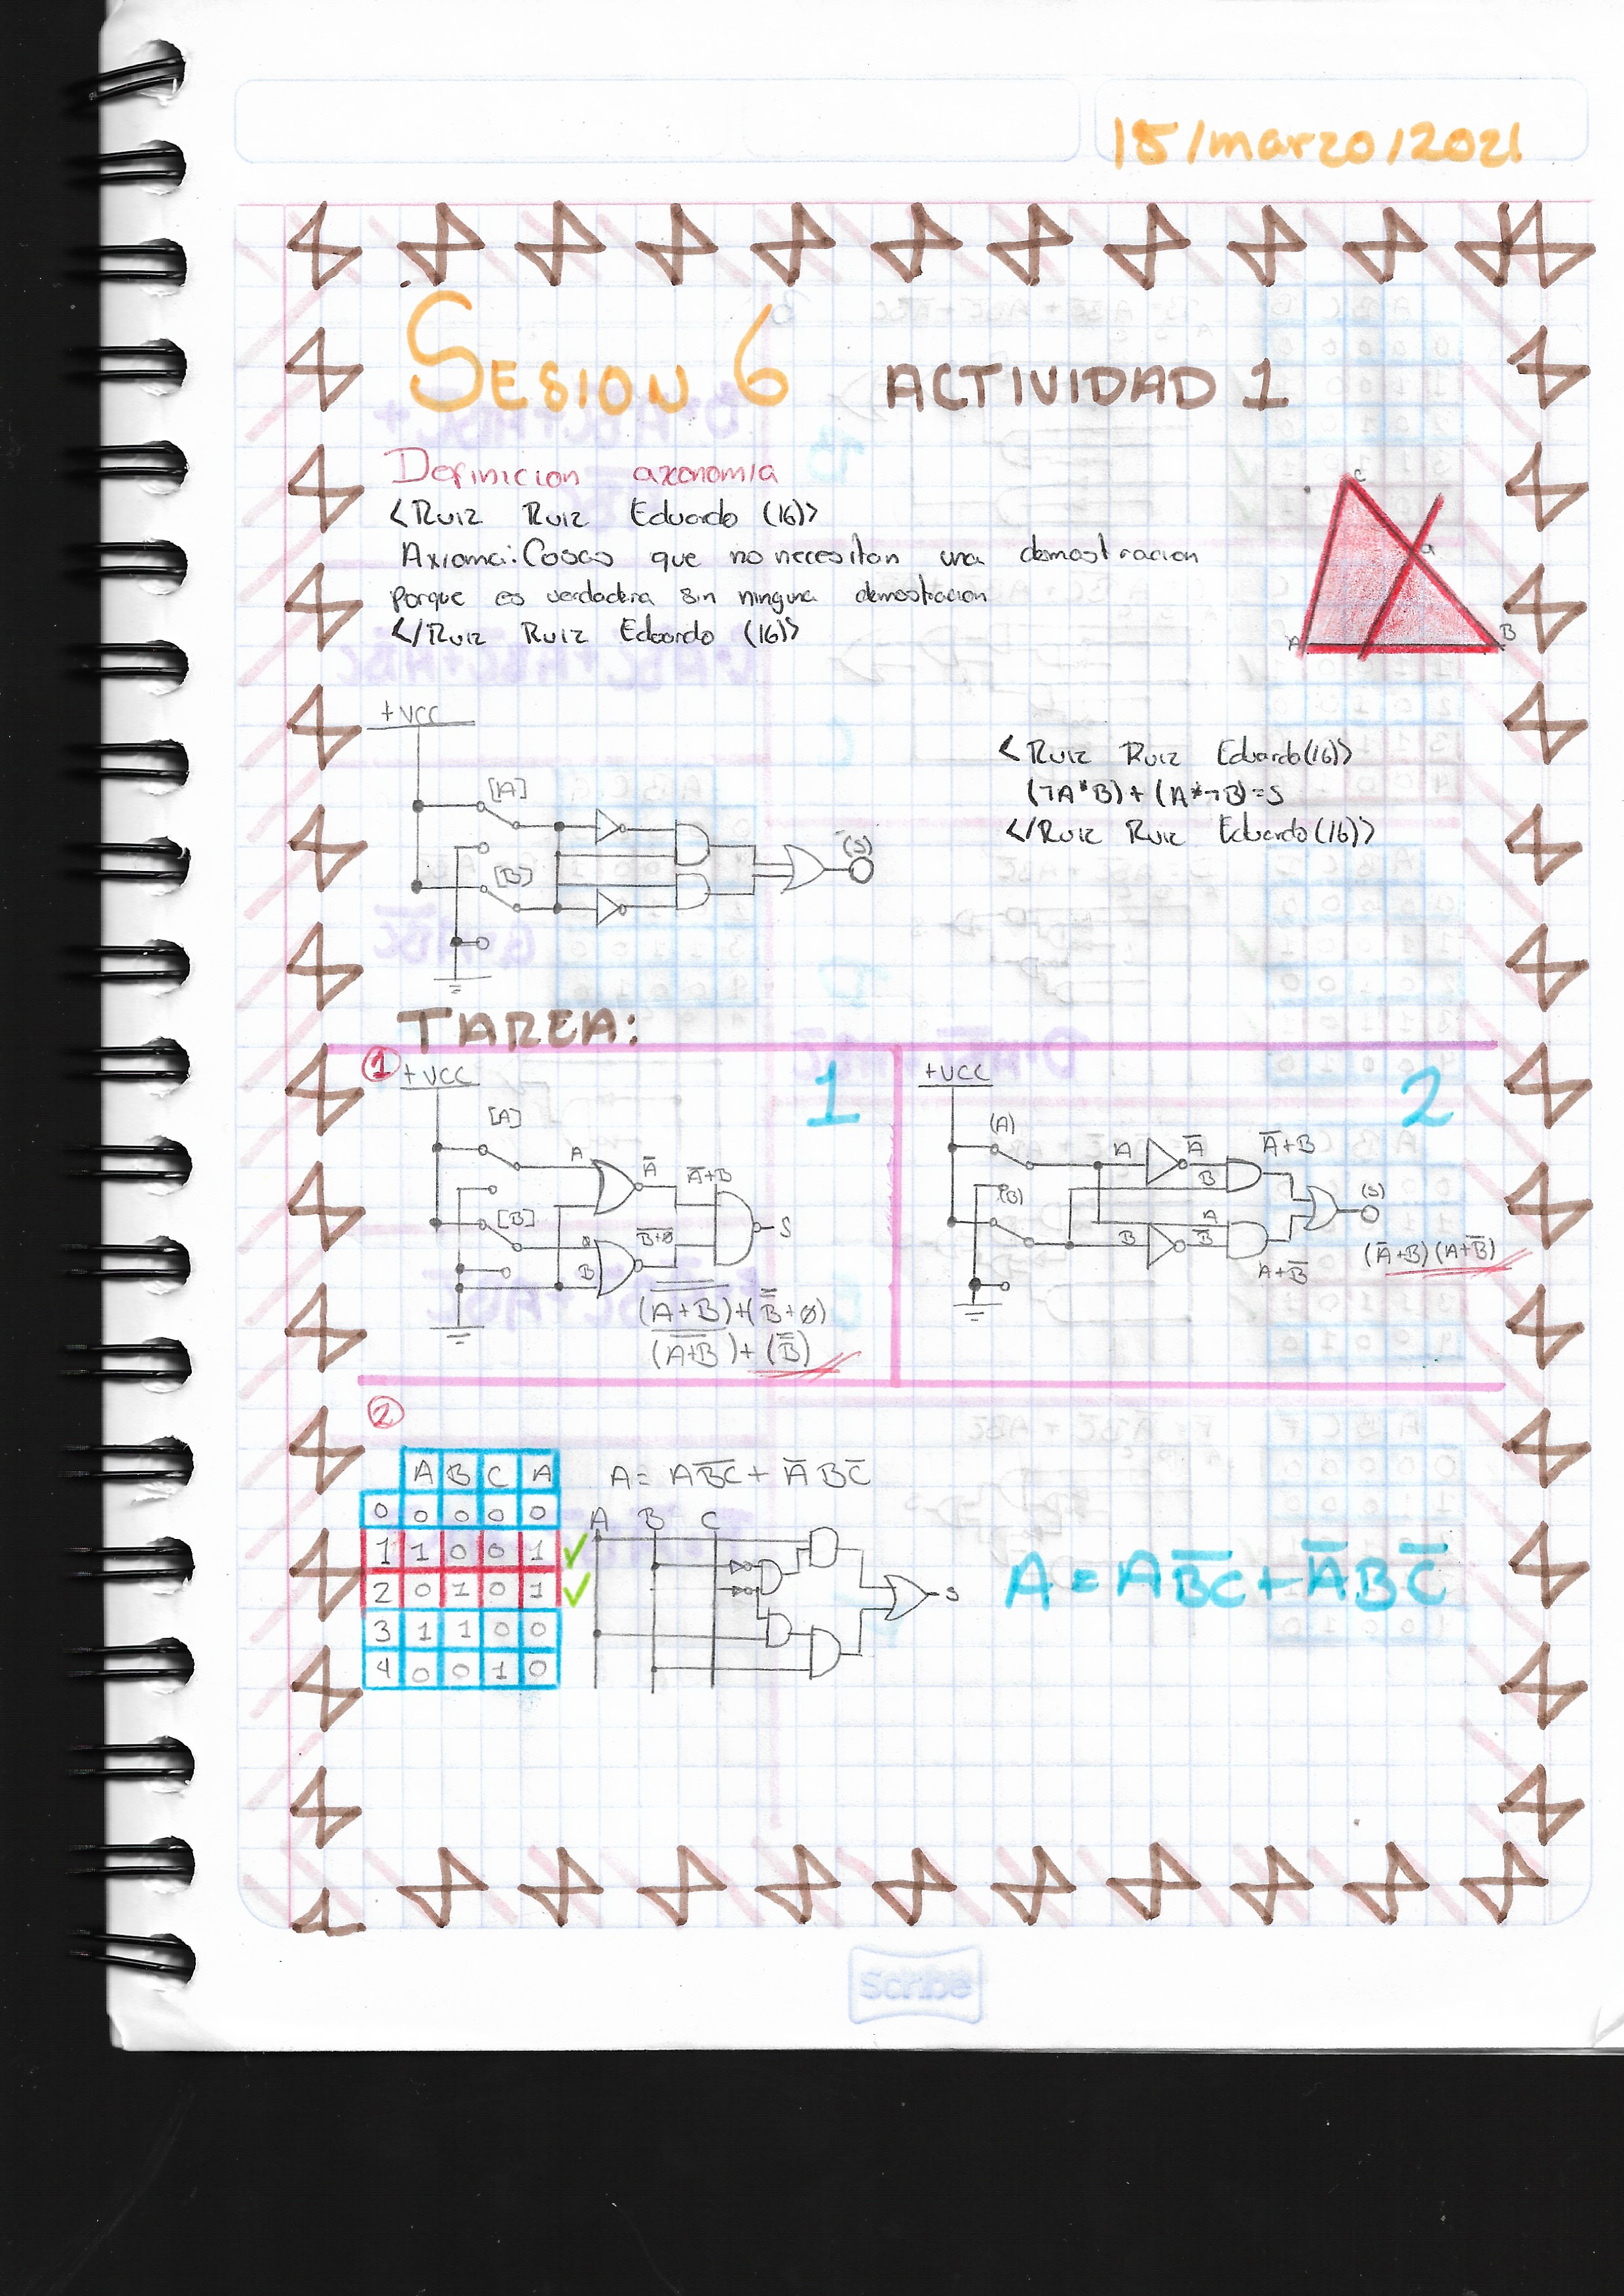 18/marzo/2021
SESION 6 ACTIVIDAD 1
Definicion axonomia
<Ruiz Ruiz Eduardo (16)>
Axioma: Cosas que no necesitan una demostracion
porque es verdadera sin ninguna demostracion
</Ruiz Ruiz Eduardo (16)>
C
a
A
B
+VCC
[A]
[B]
(S)
<Ruiz Ruiz Eduardo (16)>
(¬A*B)+(A*¬B)=S
</Ruiz Ruiz Eduardo (16)>
TAREA:
① +VCC 1
[A]
A
A̅
A̅+B
[B]
B
S
(A+B)+(B+0)
(A+B)+(B)
+VCC 2
(A)
A A̅ A̅+B
B
(B)
A
B B̅
A+B̅
(S)
(A̅+B)(A+B̅)
②
A B C A
0 0 0 0 0
1 1 0 0 1 ✓
2 0 1 0 1 ✓
3 1 1 0 0
4 0 0 1 0
A= AB̅C̅ + A̅BC̅
A B C
S
A = AB̅C̅ + A̅BC̅
Scribe